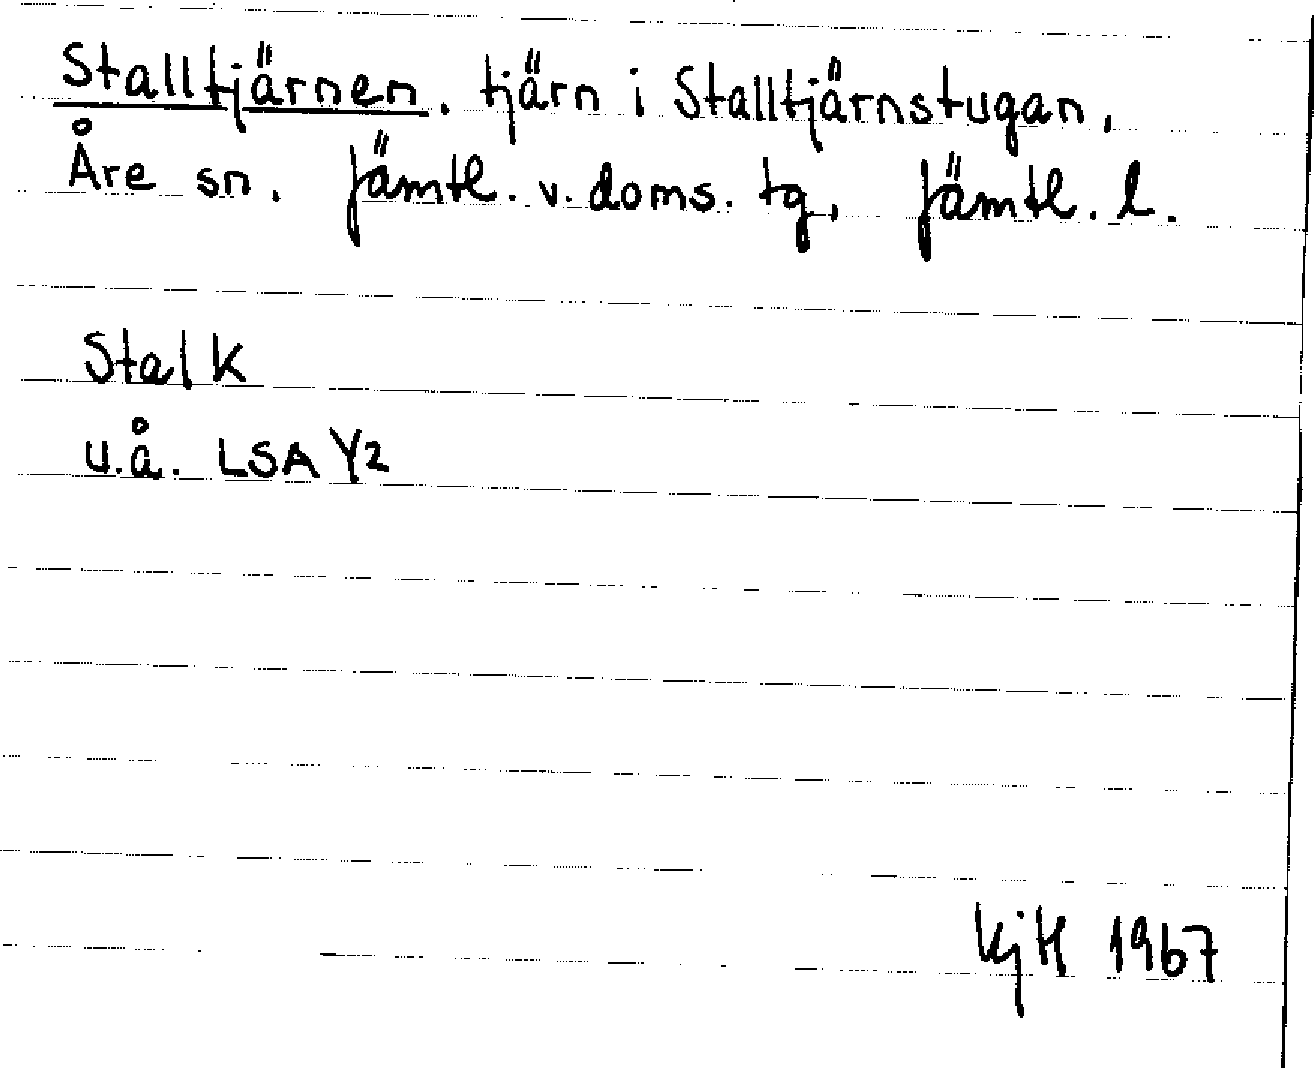 Stalltjärnen. tjärn i Stalltjärnstugan,
Åre sn. Jämtl. v. doms. tg, Jämtl. l.
Stal K
u.å. LSA Y2
KjH 1967